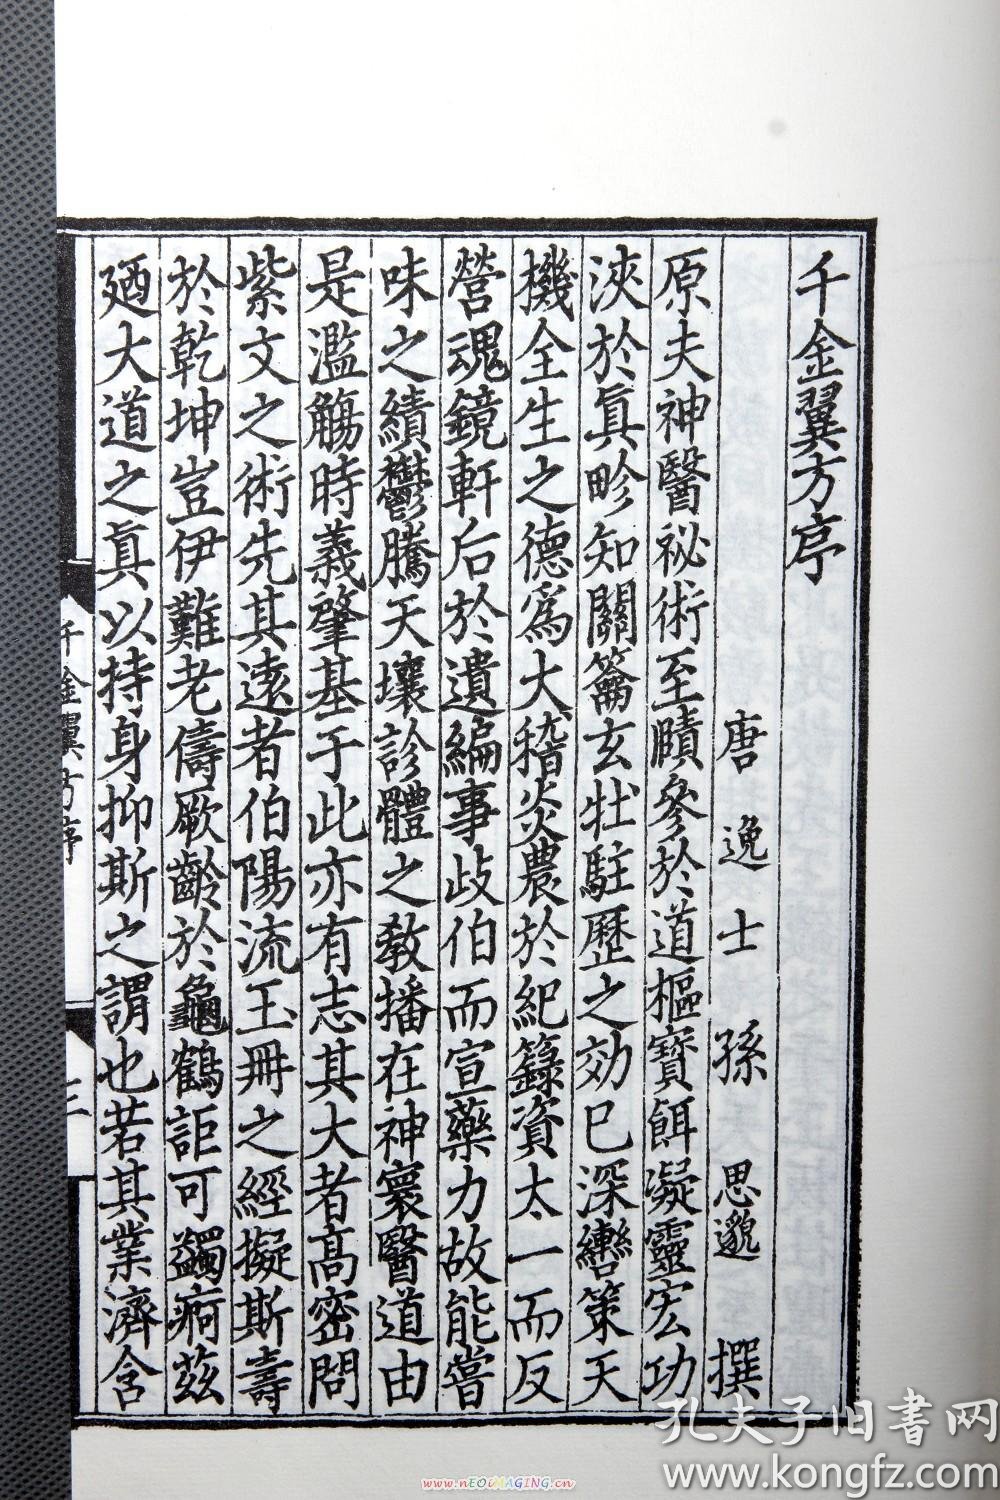 千金翼方序
唐逸士孫思邈撰
原夫神醫祕術至賾參於道樞寶餌凝靈宏功
浹於眞畛知關籥玄牡駐歷之効已深轡策天
機全生之德爲大稽炎農於紀籙資太一而反
營魂鏡軒后於遺編事歧伯而宣藥力故能嘗
味之績鬱騰天壤診體之教播在神寰醫道由
是濫觴時義肇基于此亦有志其大者高密問
紫文之術先其遠者伯陽流玉冊之經擬斯壽
於乾坤豈伊難老儔厥齡於龜鶴詎可蠲痾茲
廼大道之眞以持身抑斯之謂也若其業濟含
千金翼方序
三
孔夫子旧書网
www.kongfz.com
www.nEOiMAGING.cn